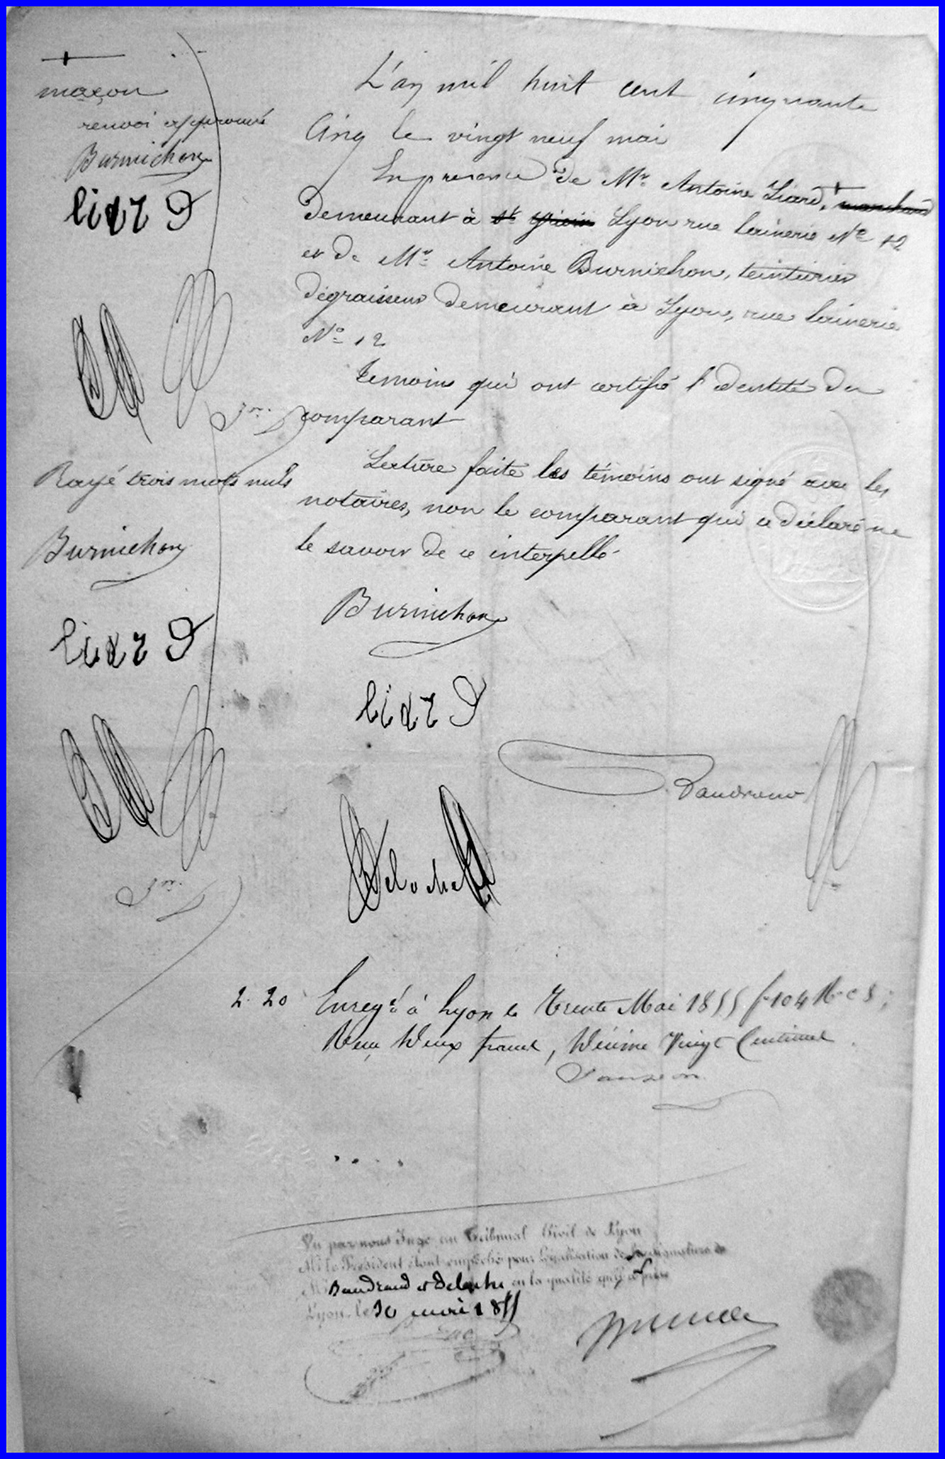 maçon
renvoi approuvé
Burnichon
liard
L'an mil huit cent cinquante
Cinq le vingt neuf mai
En presence de Mr Antoine Liard, + marchand
demeurant à st Lyon rue lainerie No 12
et de Mr Antoine Burnichon, teinturier
dégraisseur demeurant à Lyon, rue lainerie
No 12
temoins qui ont certifié l'identité du
comparant
Lecture faite les témoins ont signé avec les
notaires, non le comparant qui a déclaré ne
le savoir de ce interpellé
Rayé trois mots nuls
Burnichon
liard
Burnichon
liard
Baudrand
Deloche
2. 20 Enregé à Lyon le Trente Mai 1855 fo 104
Reçu Deux francs, Décime Vingt Centimes
Vu par nous Juge au Tribunal Civil de Lyon
Mr le Président étant empêché pour légalisation de la signature de
M Baudrand et Deloche en la qualité qu'il
Lyon, le 30 mai 1855